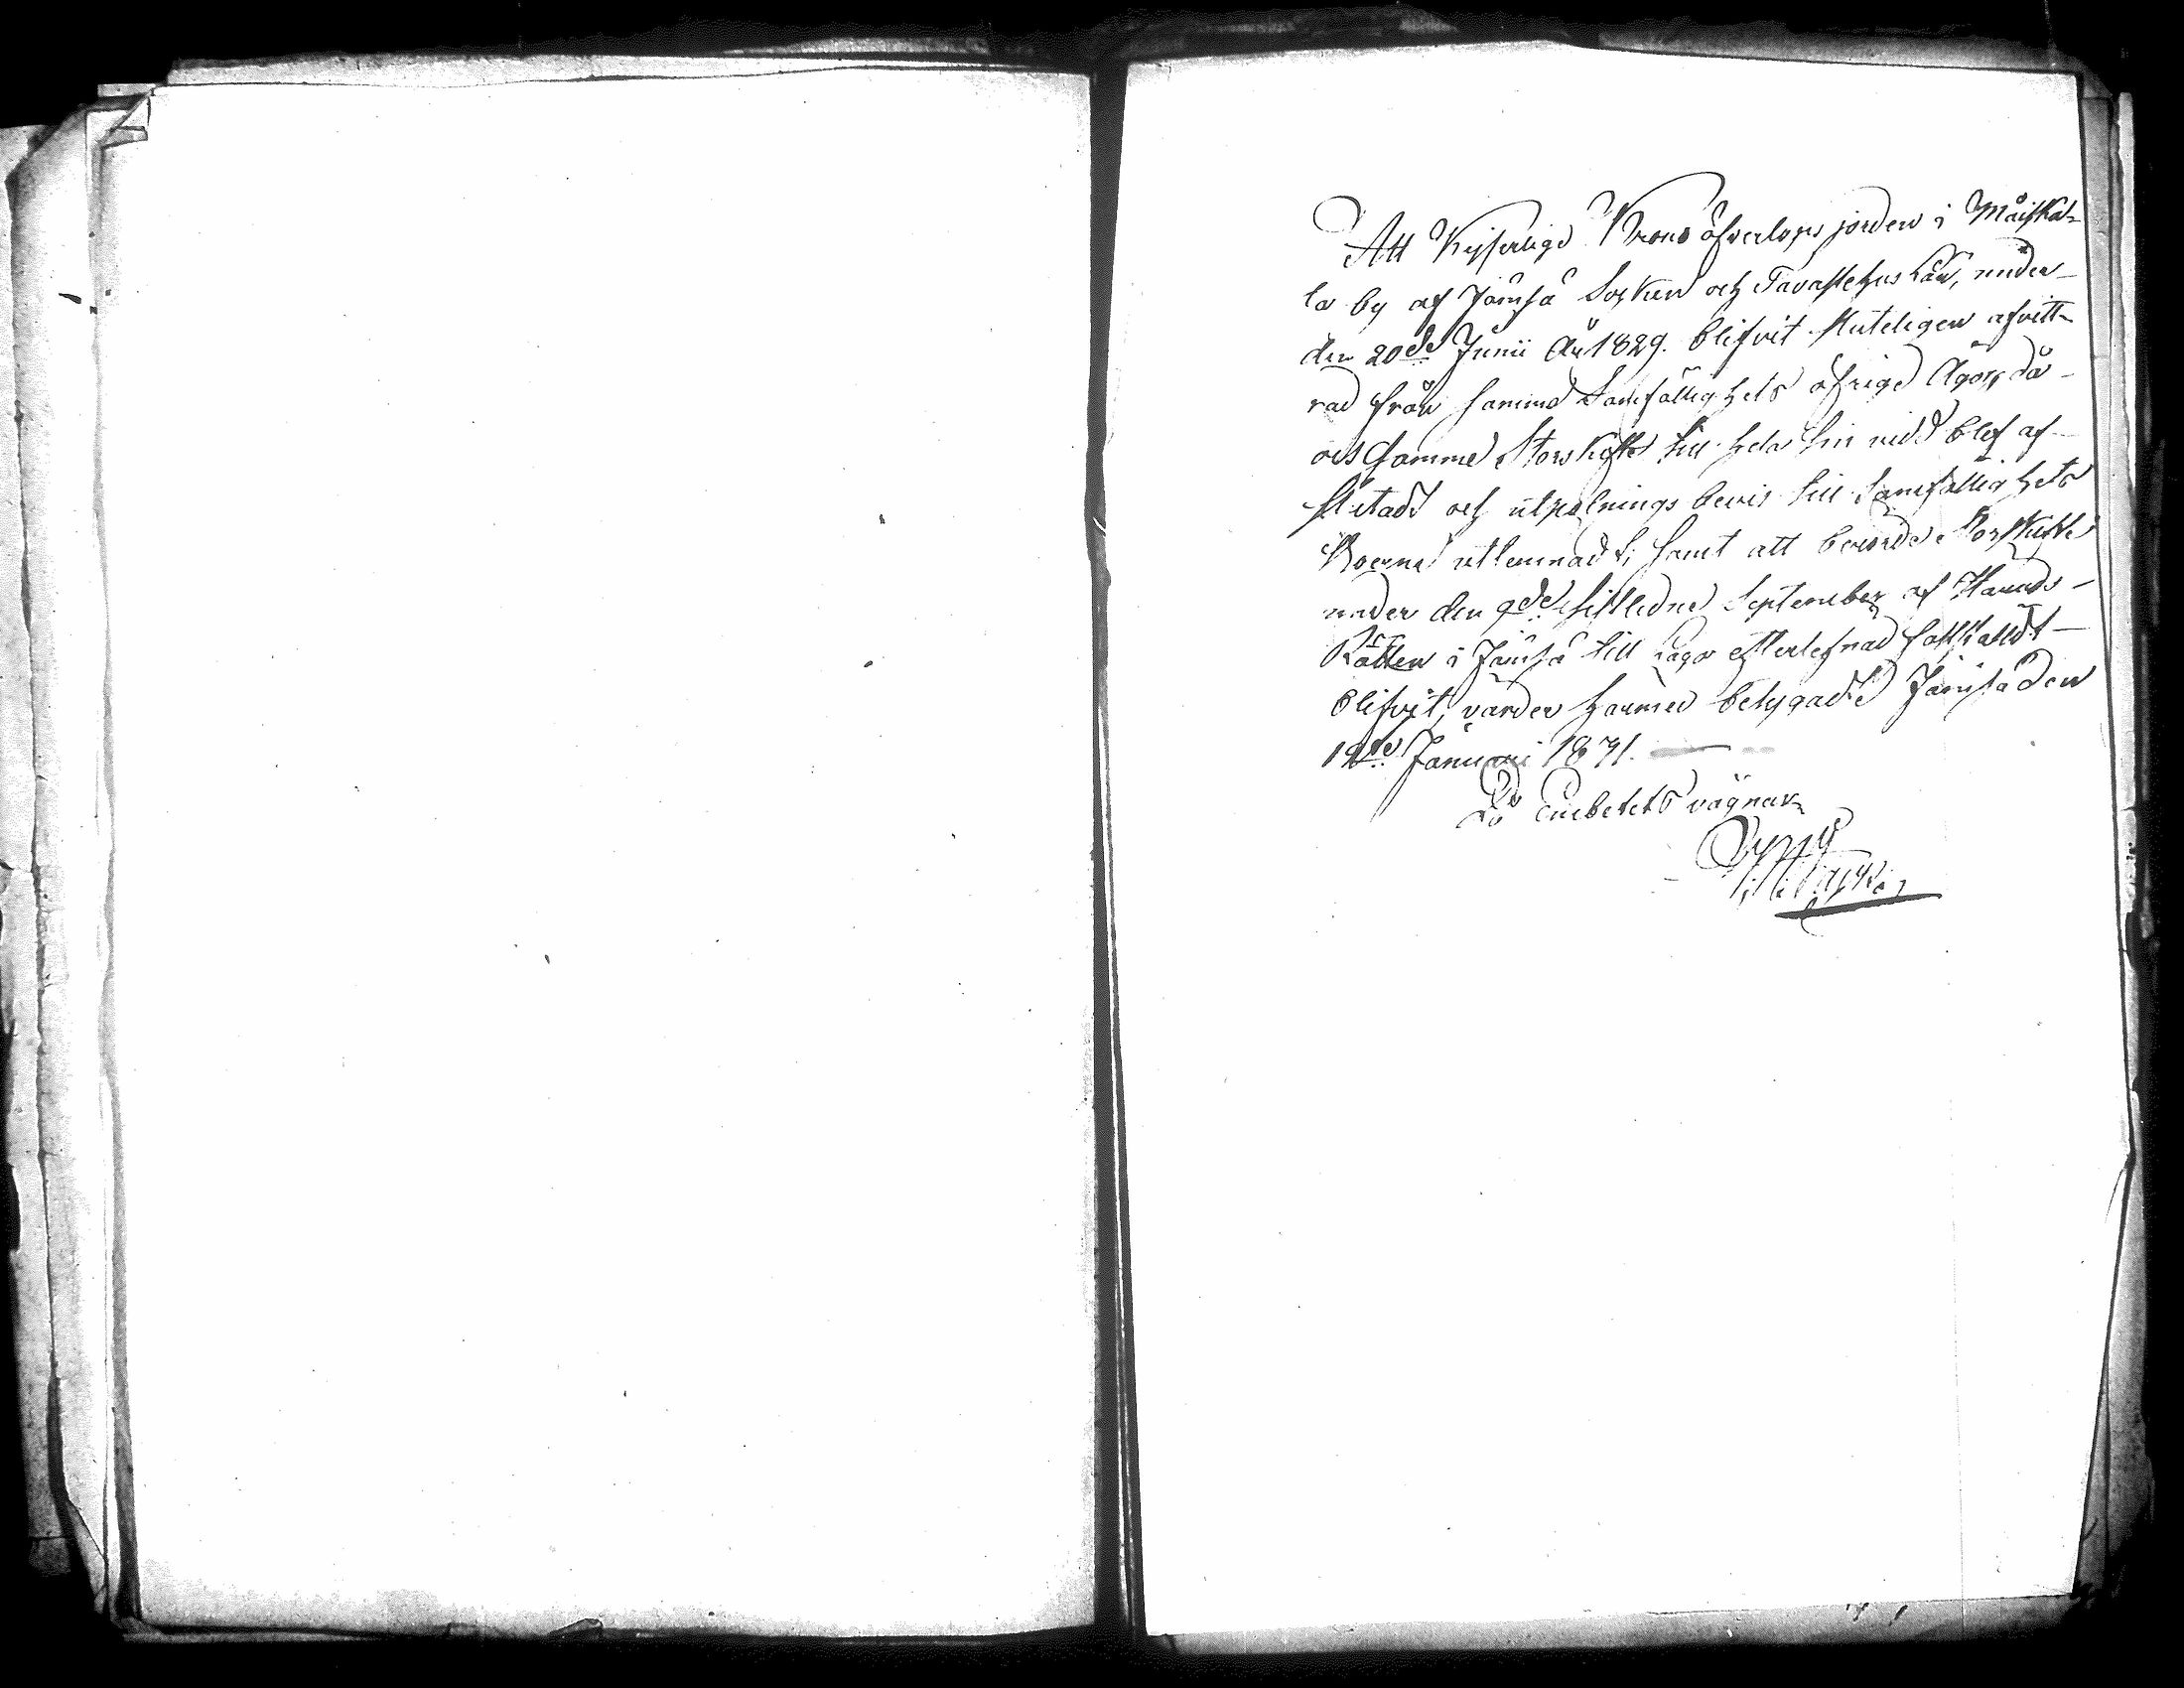 Att Kejserlige Krono öfverlops jorden i Måiska-
la by af Jämsä Socken och Tavastehus Län, under
den 20de Junii År 1829. blifvit sluteligen afvitt-
rad från samma Samfällighets öfrige Ägor, då
ock samma Storskifte till hela sin vidd blef af-
slutadt och utpålnings bevis till Samfällighets
Boerne utlemnadt; samt att berörde Storskifte
under den 9de sistledne September af Härads-
Rätten i Jämsä till Laga efterlefnad fastställdt
blifvit, varder härmed betygadt Jämsä den
19de Januari 1831.
På Embetets vägnar